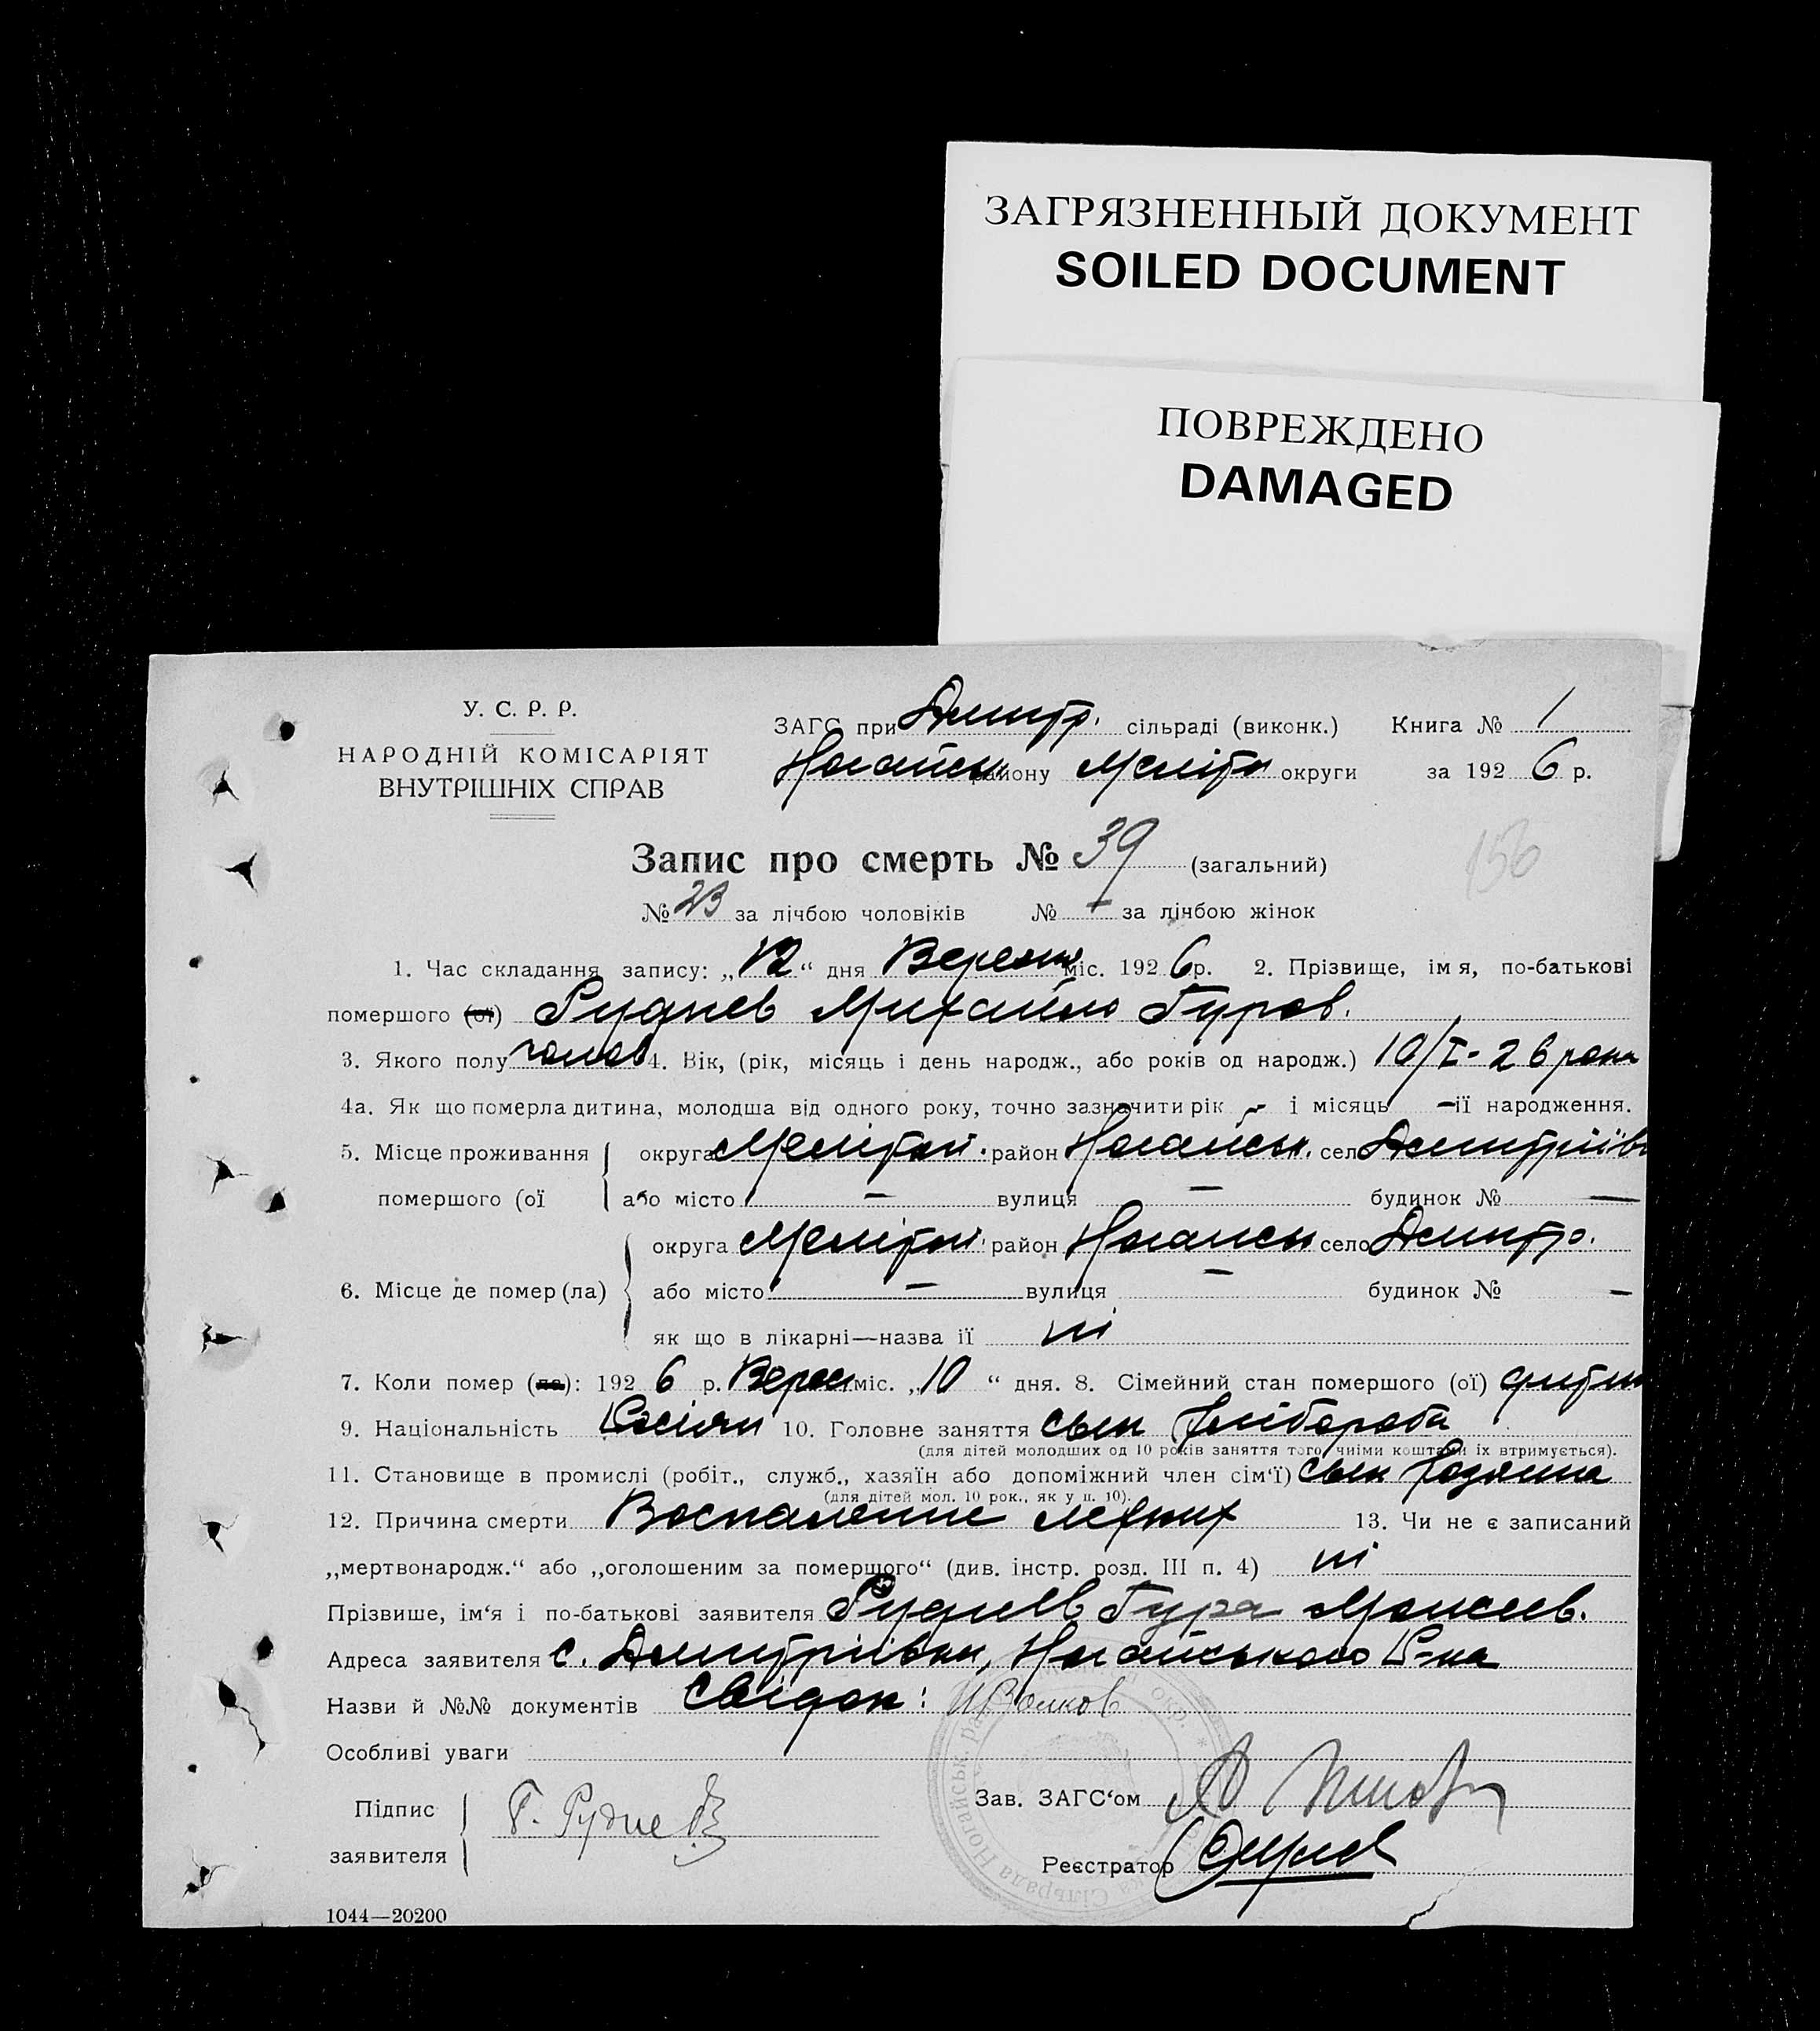 ЗАГРЯЗНЕННЫЙ ДОКУМЕНТ
SOILED DOCUMENT
ПОВРЕЖДЕНО
DAMAGED
У. С. Р. Р.
НАРОДНІЙ КОМІСАРІЯТ
ВНУТРІШНІХ СПРАВ
ЗАГС при Дмитр. сільраді (виконк.) Книга № 1
Ногайськ району Меліт округи за 192 6 р.
Запис про смерть № 39 (загальний)
156
№ 23 за лічбою чоловіків № – за лічбою жінок
1. Час складання запису: „12“ дня Вересня міс. 192 6 р. 2. Прізвище, імя, по-батькові
помершого (ої) Руднев Михайло Гуров.
3. Якого полу чолов 4. Вік, (рік, місяць і день народж., або років од народж.) 10/I - 26 року
4а. Як що померла дитина, молодша від одного року, точно зазначити рік – і місяць – ії народження.
5. Місце проживання округа Меліток. район Ногайськ. село Дмитріївк
помершого (ої або місто – вулиця – будинок № –
округа Меліток. район Ногайськ село Дмитр.
6. Місце де помер (ла) або місто – вулиця – будинок № –
як що в лікарні—назва ії ні
7. Коли помер (ла): 192 6 р. Верес міс. „10“ дня. 8. Сімейний стан помершого (ої) дитин
9. Національність 10. Головне заняття сын хлібороба
(для дітей молодших од 10 років заняття того, чиїми коштами їх втримується).
11. Становище в промислі (робіт., служб., хазяїн або допоміжний член сім‘ї) сын хозяина
(для дітей мол. 10 рок., як у п. 10).
12. Причина смерти Воспаление легких 13. Чи не є записаний
„мертвонародж.“ або „оголошеним за померщого“ (див. інстр. розд. III п. 4) ні
Прізвише, ім‘я і по-батькові заявителя Руднев Гура Моисеев.
Адреса заявителя с. Дмитріівки, Ногайського Р-на
Назви й №№ документів Свідок: И Волков
Особливі уваги
Підпис Г. Руднев Зав. ЗАГС‘ом
заявителя Реєстратор
1044—20200